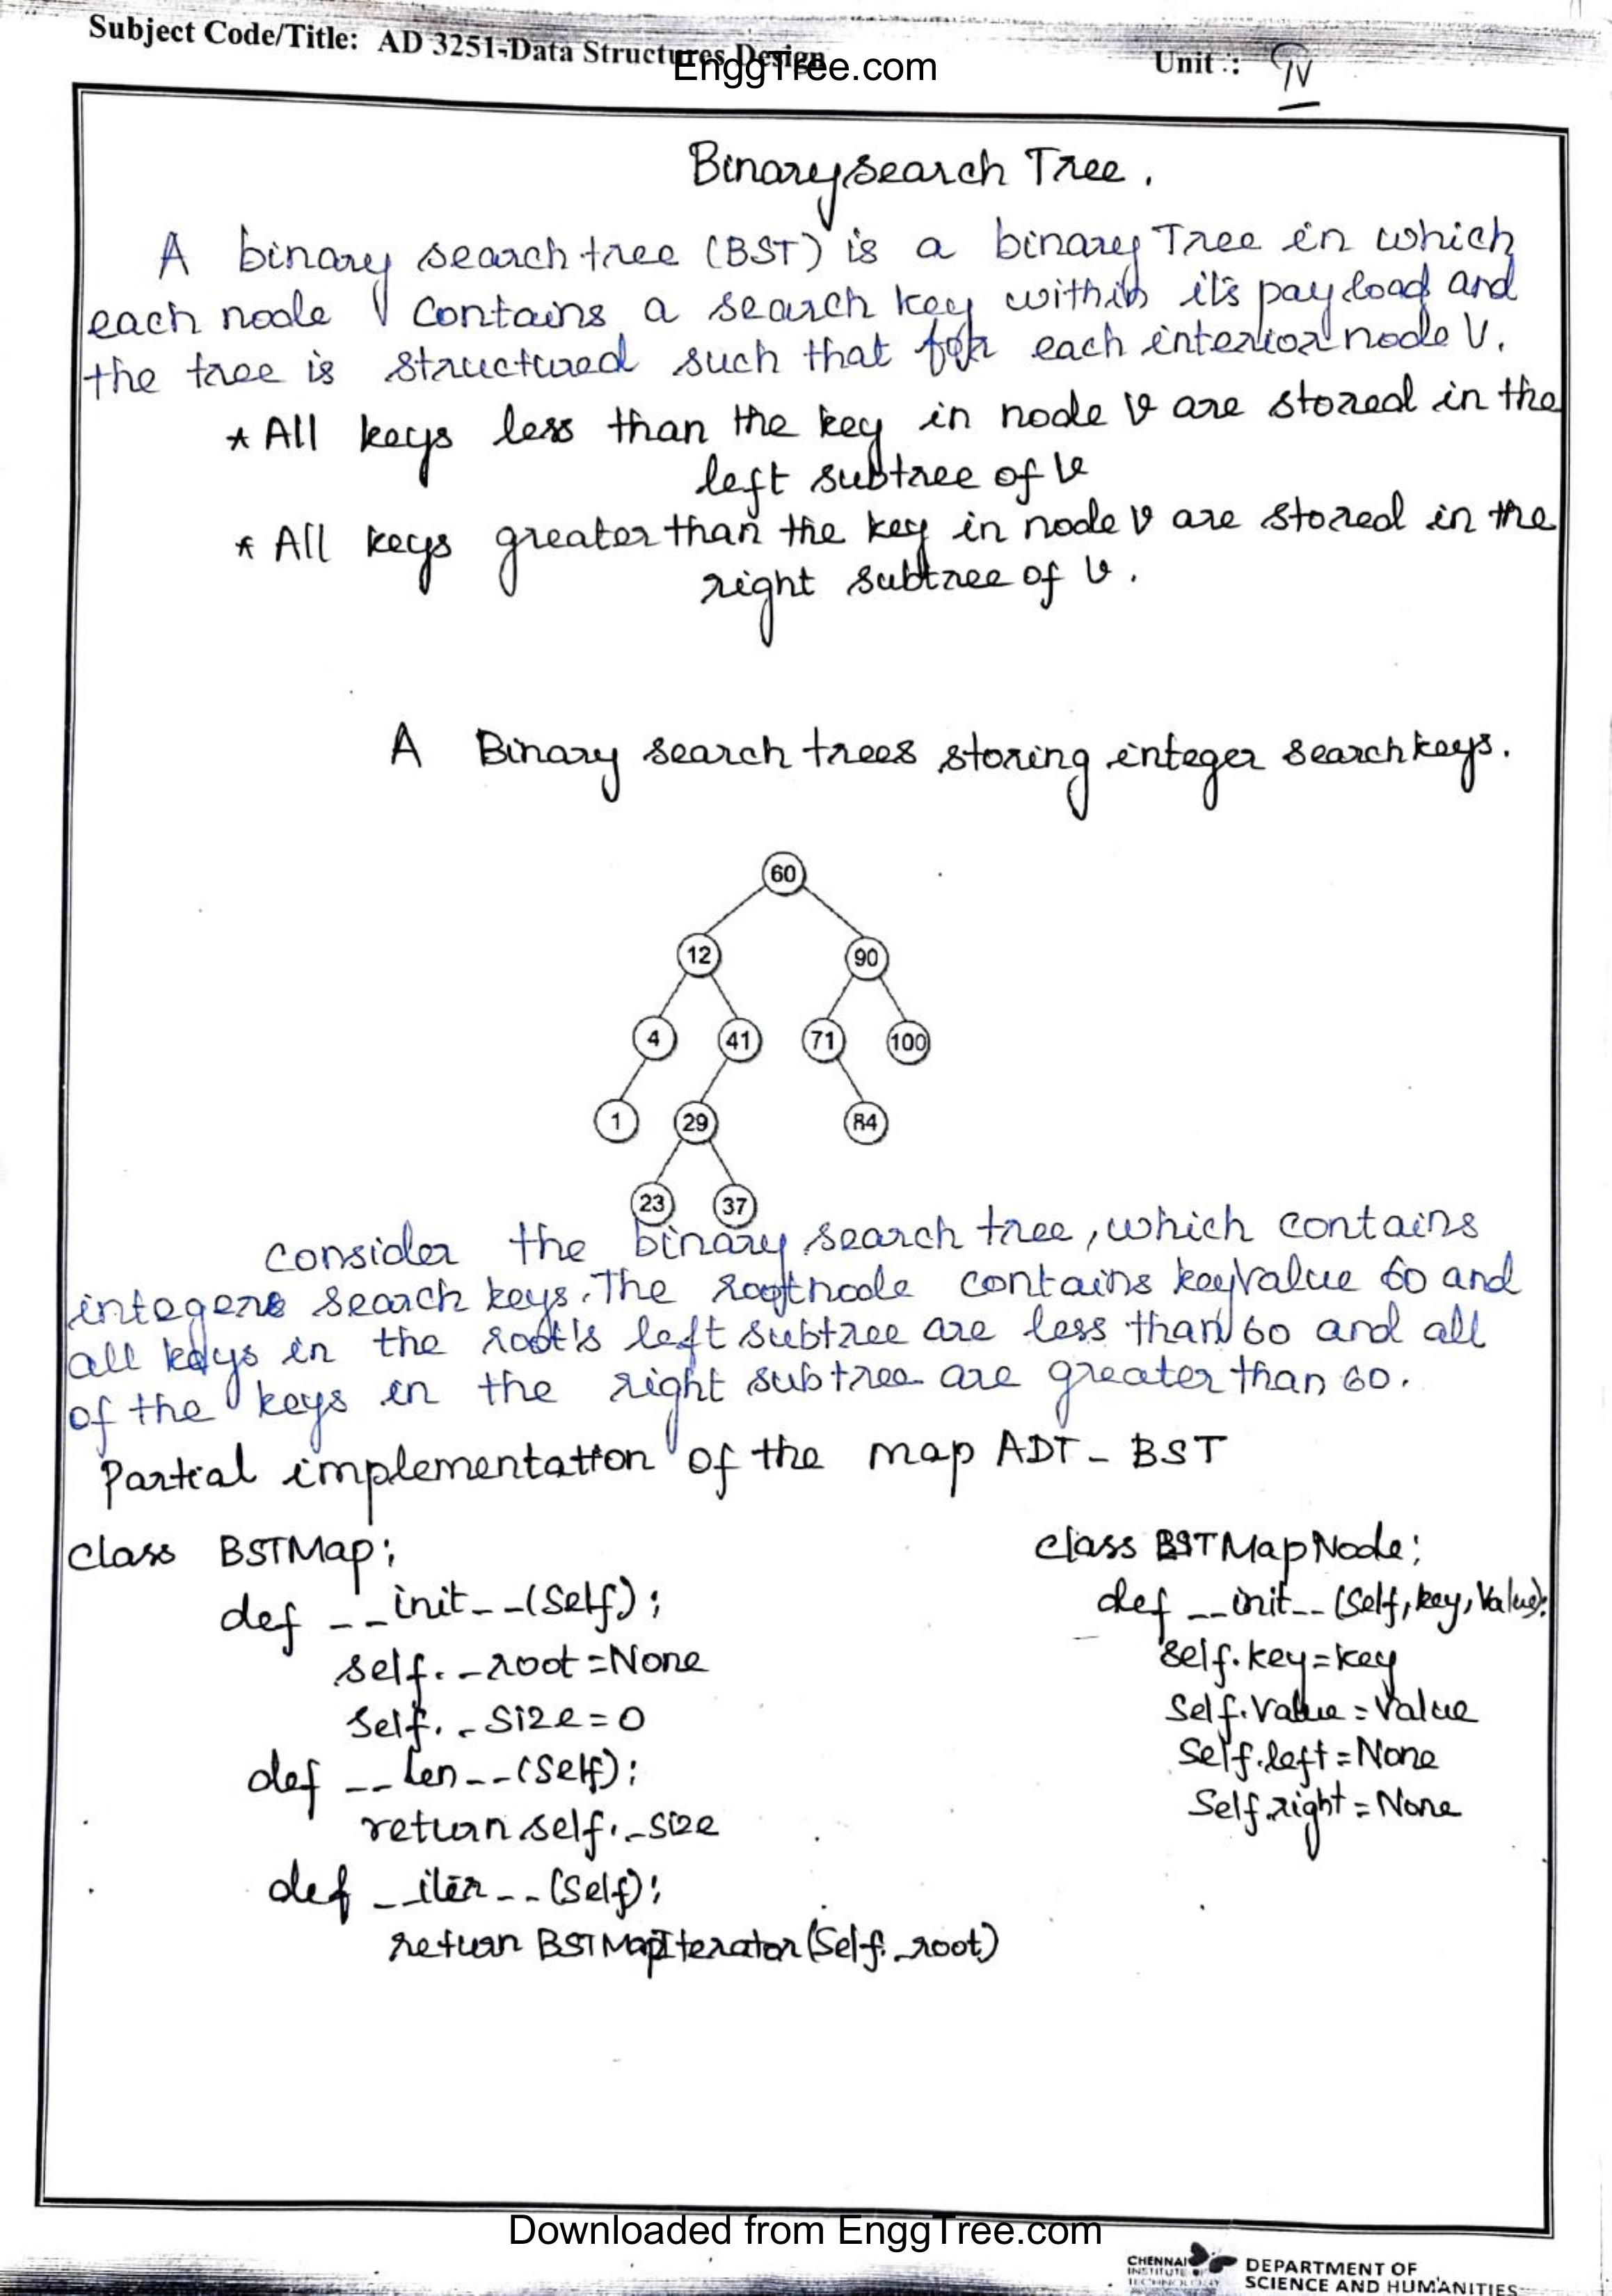 Subject Code/Title: AD 3251-Data Structures Design
EnggTree.com
Unit : IV
Binary search Tree.
A binary search tree (BST) is a binary Tree in which
each node contains a search key within it's payload and
the tree is structured such that for each interior node V.
* All keys less than the key in node v are stored in the
left subtree of v
* All keys greater than the key in node v are stored in the
right subtree of v.
A Binary search trees storing integer search keys.
60
12 90
4 41 71 100
1 29 84
23 37
Consider the binary search tree, which contains
integers search keys. The root node contains key value 60 and
all keys in the root's left subtree are less than 60 and all
of the keys in the right subtree are greater than 60.
Partial implementation of the map ADT - BST
class BSTMap:
def __init__(self):
self._root=None
self._size=0
def __len__(self):
return self._size
def __iter__(self):
return BSTMapIterator(self._root)
class BSTMapNode:
def __init__(self,key,value):
self.key=key
self.value=value
self.left=None
self.right=None
Downloaded from EnggTree.com
CHENNAI
INSTITUTE OF
TECHNOLOGY
DEPARTMENT OF
SCIENCE AND HUMANITIES